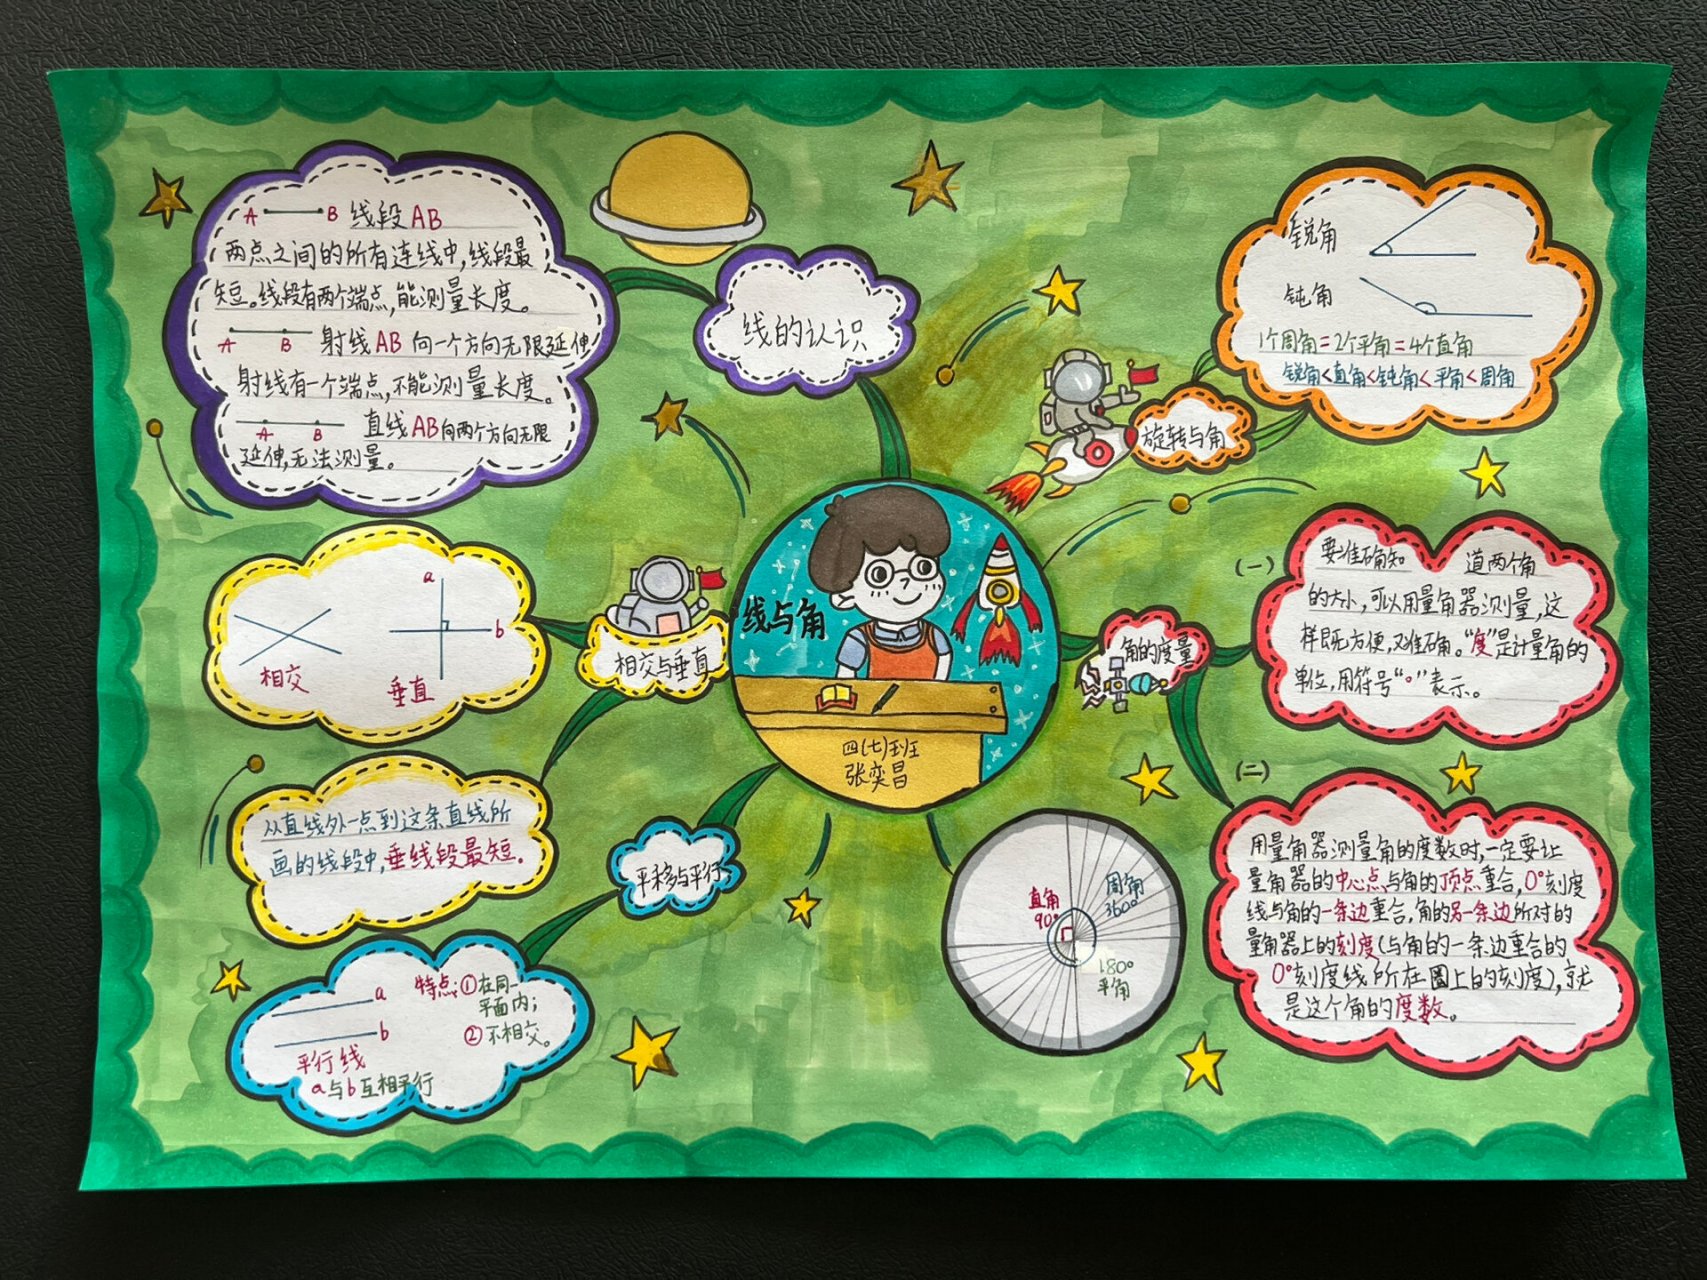 A B 线段AB
两点之间的所有连线中,线段最
短。线段有两个端点,能测量长度。
A B 射线AB 向一个方向无限延伸
射线有一个端点,不能测量长度。
A B 直线AB向两个方向无限
延伸,无法测量。
线的认识
锐角
钝角
1个周角=2个平角=4个直角
锐角<直角<钝角<平角<周角
旋转与角
a
b
相交
垂直
相交与垂直
从直线外一点到这条直线所
画的线段中,垂线段最短。
线与角
四(七)班
张奕昌
角的度量
(一)
要准确知 道两个角
的大小,可以用量角器测量,这
样既方便,又准确。“度”是计量角的
单位,用符号“°”表示。
(二)
用量角器测量角的度数时,一定要让
量角器的中心点与角的顶点重合,0°刻度
线与角的一条边重合,角的另一条边所对的
量角器上的刻度(与角的一条边重合的
0°刻度线所在圈上的刻度),就
是这个角的度数。
平移与平行
a
b
平行线
a与b互相平行
特点:①在同一
平面内;
②不相交。
直角
90°
周角
360°
180°
平角